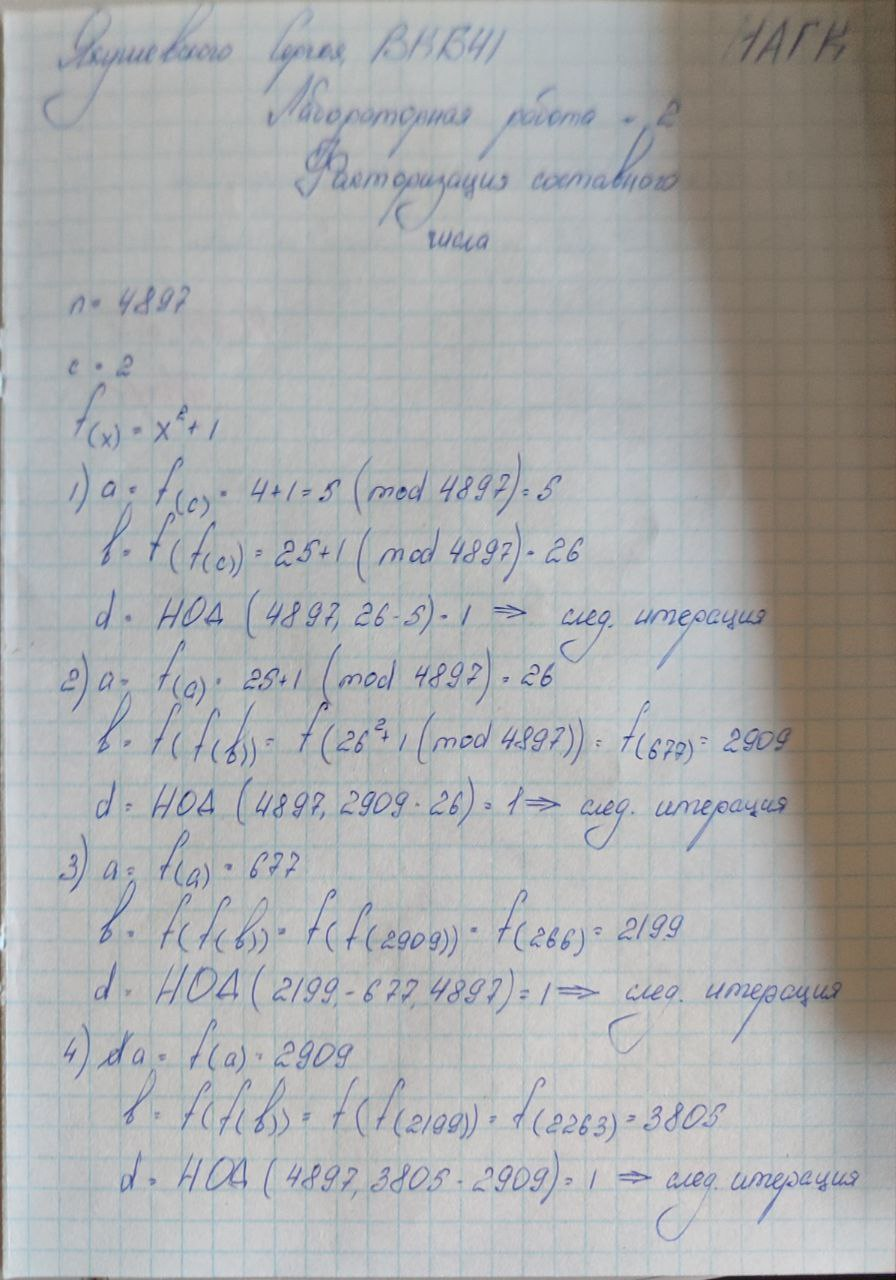 Якушевского Сергея ВКБ41 НАГК
Лабораторная работа - 2
Факторизация составного
числа
n = 4897
c = 2
f(x) = x² + 1
1) a = f(c) = 4+1 = 5 (mod 4897) = 5
b = f(f(c)) = 25+1 (mod 4897) = 26
d = НОД (4897, 26-5) = 1 ⇒ след. итерация
2) a = f(a) = 25+1 (mod 4897) = 26
b = f(f(b)) = f(26²+1 (mod 4897)) = f(677) = 2909
d = НОД (4897, 2909-26) = 1 ⇒ след. итерация
3) a = f(a) = 677
b = f(f(b)) = f(f(2909)) = f(266) = 2199
d = НОД (2199-677, 4897) = 1 ⇒ след. итерация
4) a = f(a) = 2909
b = f(f(b)) = f(f(2199)) = f(2263) = 3805
d = НОД (4897, 3805-2909) = 1 ⇒ след. итерация